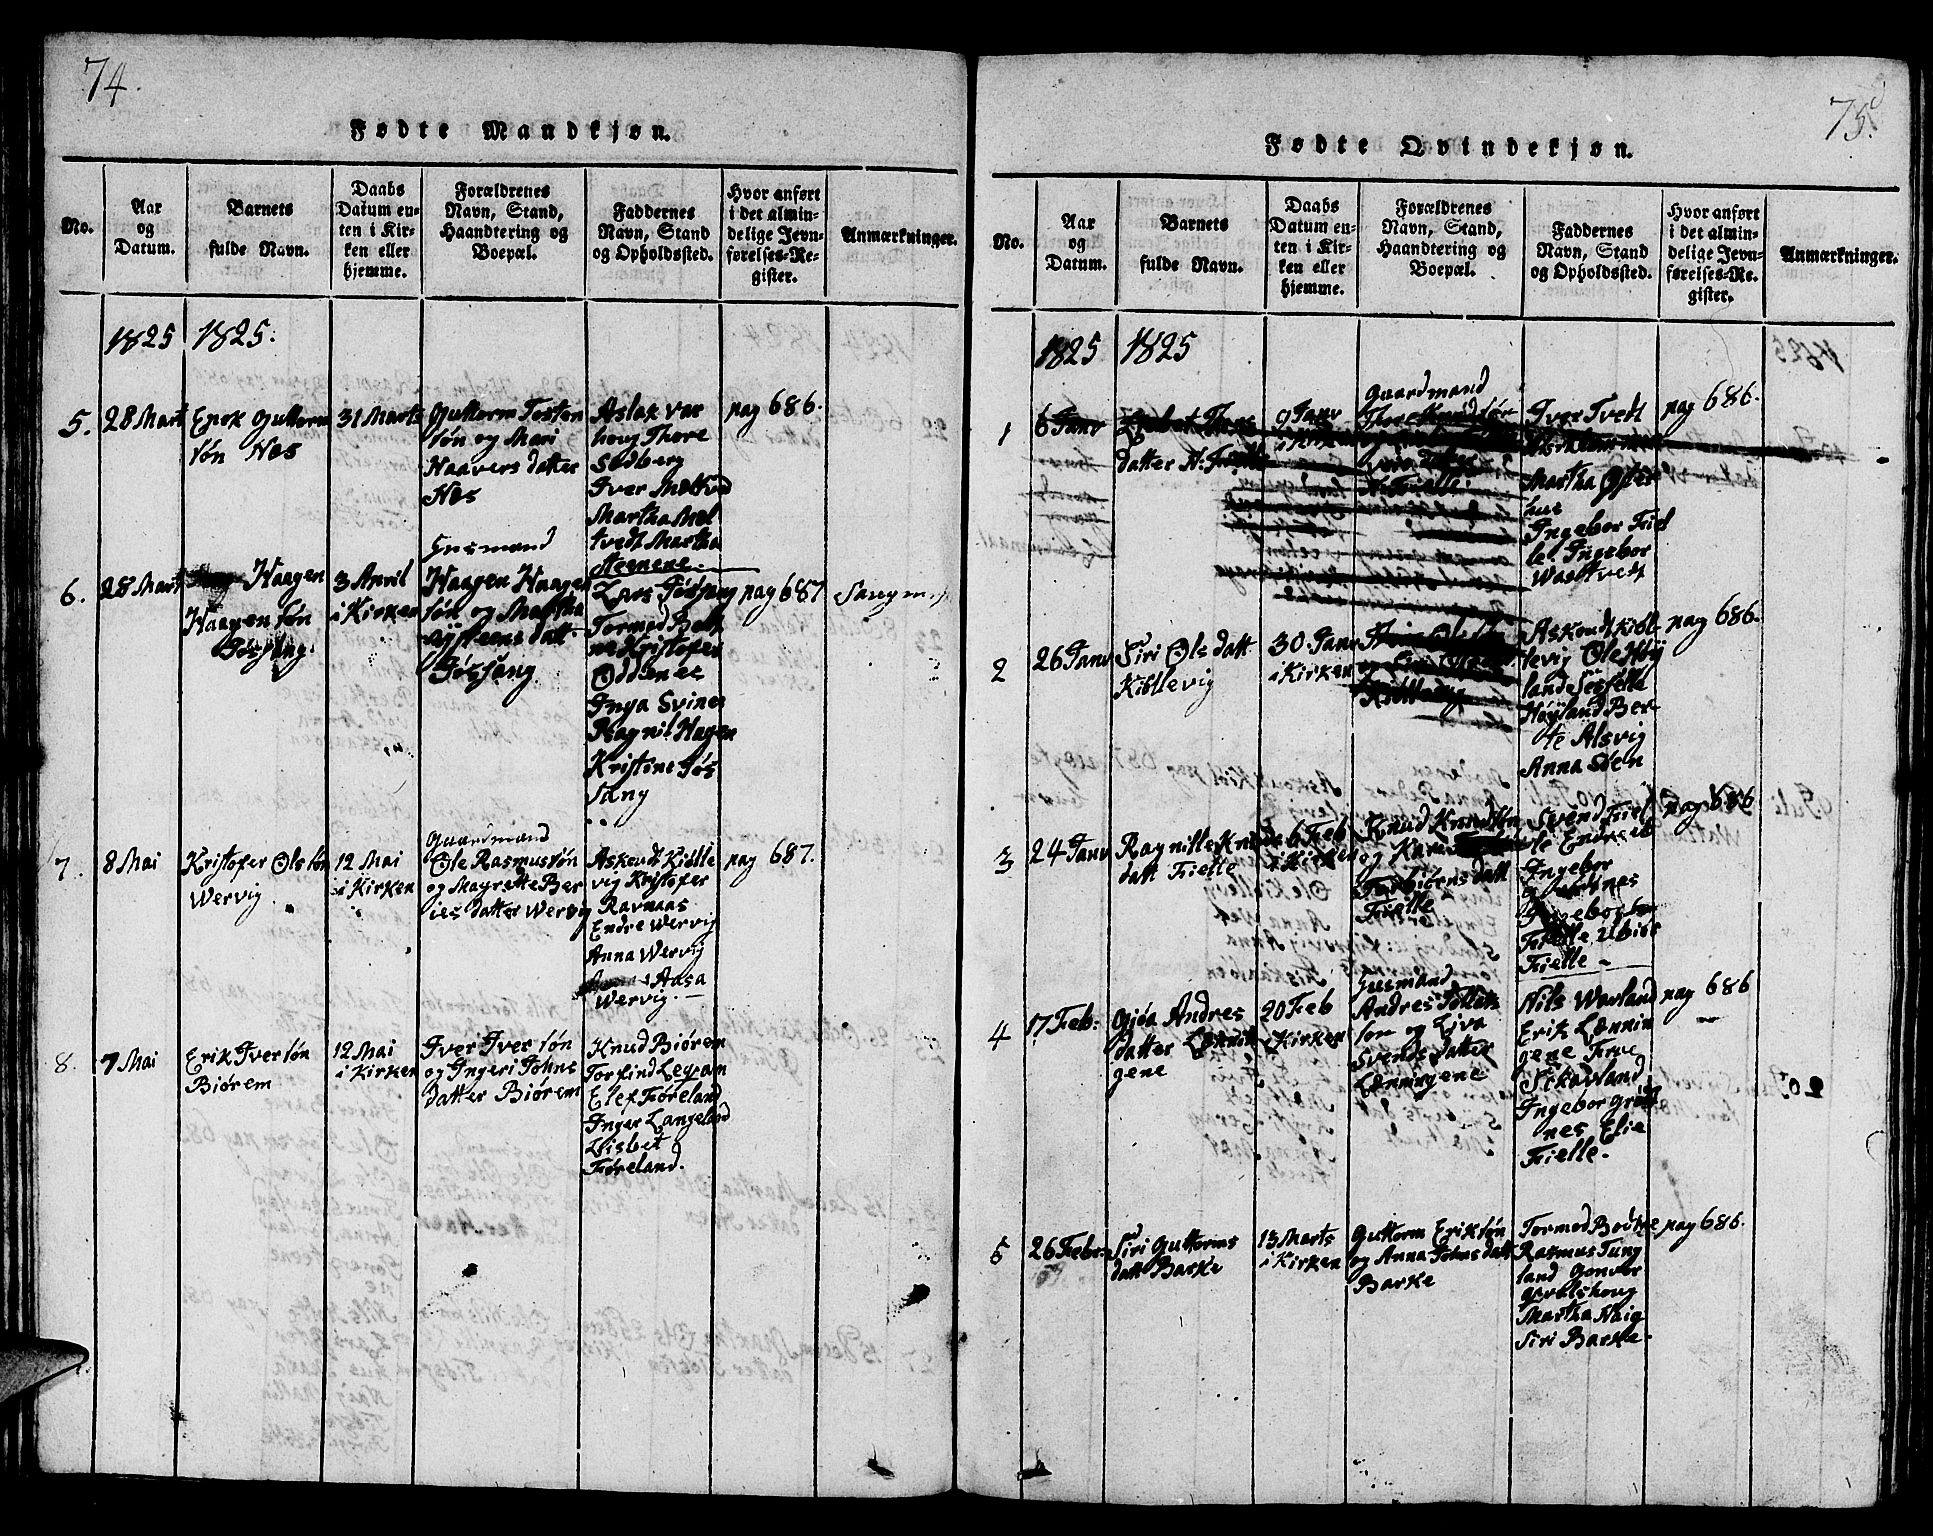 74.
Fødte Mandkjøn.
No.
Aar
og
Datum.
Barnets
fulde Navn.
Daabs
Datum en-
ten i Kir-
ken eller
hjemme.
Forældrenes
Navn, Stand,
Haandtering og
Boepæl.
Faddernes
Navn, Stand
og Opholdssted.
Hvor anført
i det almin-
delige Jevn-
førelses-Re-
gister.
Anmærkninger.
1825
1825.
5.
28 Mart
Guttorm
søn Nes
31 Marts
Guttorm Tosten
søn og Mari
Haavers datter
Nes
Aslak Var
houg Thore
Sodberg
Iver Meltved
Martha Mel
tvedt Martha
pag 686.
6.
28 Mart
Haagen
Haagen søn
Tøssang.
3 April
i Kirken
Huusmand
Haagen Haagen
søn og Martha
datt
Tøssang
Lars Tøssang
Tormod Bok
ne Kristofer
Oddenee
Inga Svines
Ragnil Hagen
Kristene Tøs
sang
pag 687
7.
8 Mai
Kristofer Ols søn
Wervig
12 Mai
i Kirken
Gaardmand
Ole Rasmussøn
og Magrette Ber
ies datter Wervig
Askoudt Kidlle
vig Kristofer
Ravnaas
Endre Wervig
Anna Wervig
Aasa
Wervig.
pag 687.
8.
7 Mai
Erik Iversøn
Biørem
12 Mai
i Kirken
Iver Iver søn
og Ingeri Johns
datter Biørem
Knud Biørem
Torfind Legram
Elef Føreland
Inger Langeland
Lisbet
Føreland.
75.
Fødte Qvindekjøn.
No.
Aar
og
Datum.
Barnets
fulde Navn.
Daabs
Datum en-
ten i Kir-
ken eller
hjemme.
Forældrenes
Navn, Stand,
Haandtering og
Boepæl.
Faddernes
Navn, Stand
og Opholdssted.
Hvor anført
i det almin-
delige Jevn-
førelses-Re-
gister.
Anmærkninger.
1825
1825
1
6 Janv
Thores
datter N: Fielle
9 Janv
i Kirken
Gaardmand
Thore Knudsøn
N: Fielle
Iver Tvedt
Martha Øster
hus
Ingebor Fiel
le Ingebor
Wastvedt
pag 686.
2
26 Janv
Siri Ols datt
Kidllevig
30 Janv
i Kirken
Kidllevig
Askoudt Kidl-
levig Ole Høy
land
Høyland Ber-
te Alsvig
Anna Søen
pag 686.
3
24 Janv
Ragnille Knuds
datt Fielle
6 Feb
i Kirken
Knud Knudsøn
og Kari
Torbiørns datt
Fielle
Svend Fiel
le Endre
Ingebor
Grødnes
Ingebor
Fielle
Fielle
pag 686
4
17 Feb:
Giøa Andres
datter Lønnin
gene
20 Feb
i Kirken
Huusmand
Andres Tollak
søn og Liva
Svends datter
Lønningene
Nils Warland
Erik Lønnin
gene
Warland
Ingebor Grød
nes Elie
Fielle.
pag 686
5
26 Febr:
Siri Guttorms
datt Barke
13 Marts
i Kirken
Guttorm Erikssøn
og Anna Johns datt
Barke
Tormod Bodne
Rasmus Tung
land Gonver
Martha Haig
Siri Barke.
pag 686.